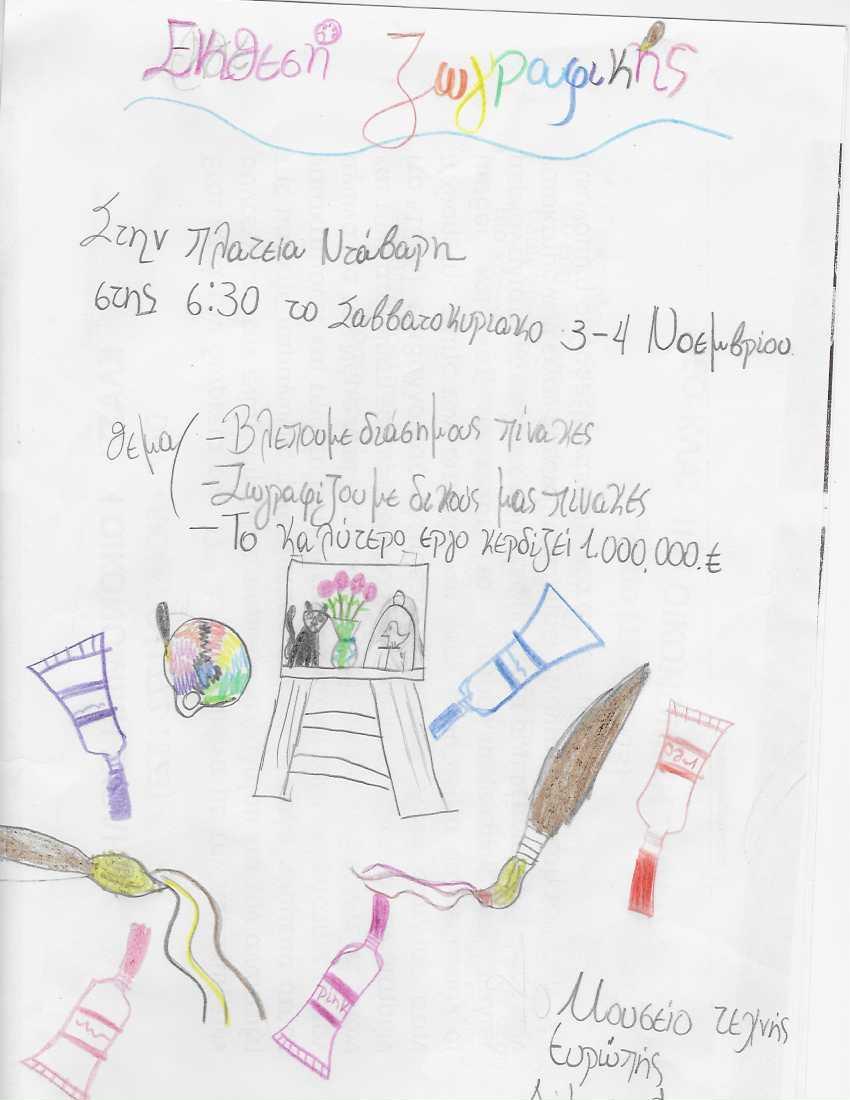 Εκθεση ζωγραφικής
Στην πλατεια Νταβαρη
στης 6:30 το Σαββατοκυριακο 3-4 Νοεμβρίου.
θεμα
-Βλεπουμε διάσημους πίνακες
-Ζωγραφίζουμε δικούς μας πίνακες
-Το καλύτερο εργο κερδίζει 1.000,000.€
pink
Μουσείο τεχνής
Ευρώπής